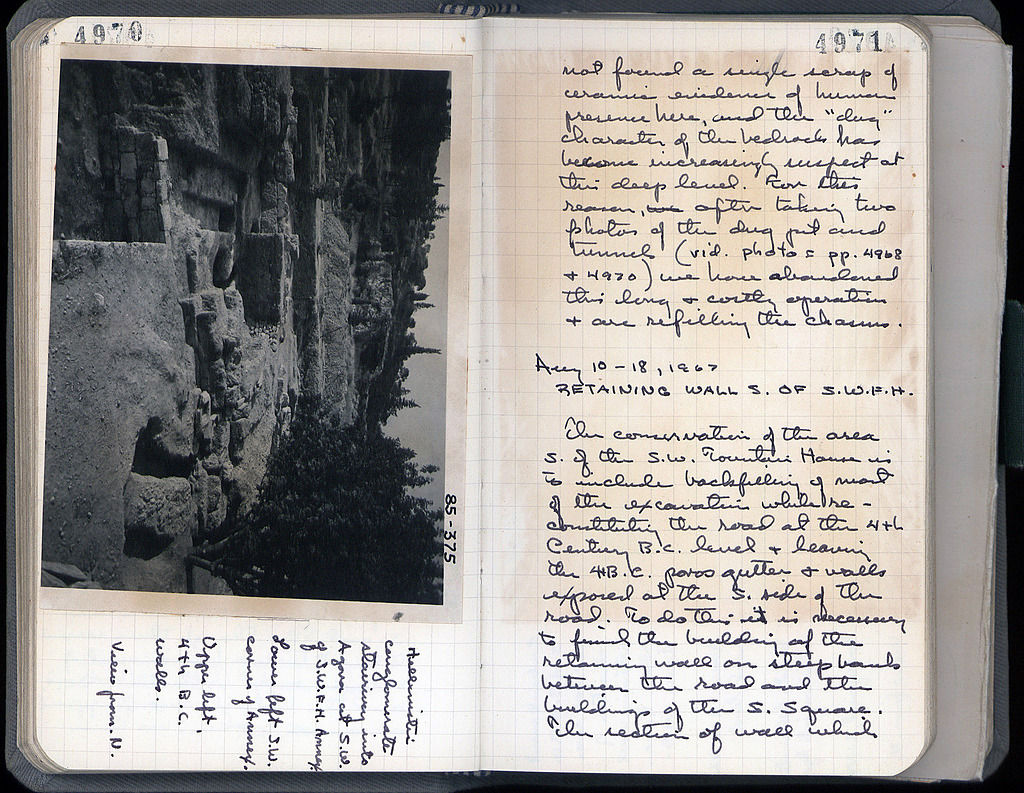 4970
85-375
Hellenistic
conglomerate
stairway into
Agora at S.W.
of S.W.F.H. Annex
Lower left S.W.
corner of Annex.
Upper left,
4th B.C.
walls.
View from N.
4971
not found a single scrap of
ceramic evidence of human
presence here, and the "dug"
character of the bedrock has
become increasingly suspect at
this deep level. For this
reason, we after taking two
photos of the dug pit and
tunnels (vid. photos pp. 4968
+ 4970) we have abandoned
this long + costly operation
+ are refilling the chasms.
Aug 10-18, 1967
RETAINING WALL S. OF S.W.F.H.
The conservation of the area
S. of the S.W. Fountain House is
to include backfilling of most
of the excavation while re-
constituting the road at the 4th
Century B.C. level + leaving
the 4 B.C. poros gutter + walls
exposed at the S. side of the
road. To do this it is necessary
to finish the building of the
retaining wall on steep bank
between the road and the
buildings of the S. Square.
The section of wall which